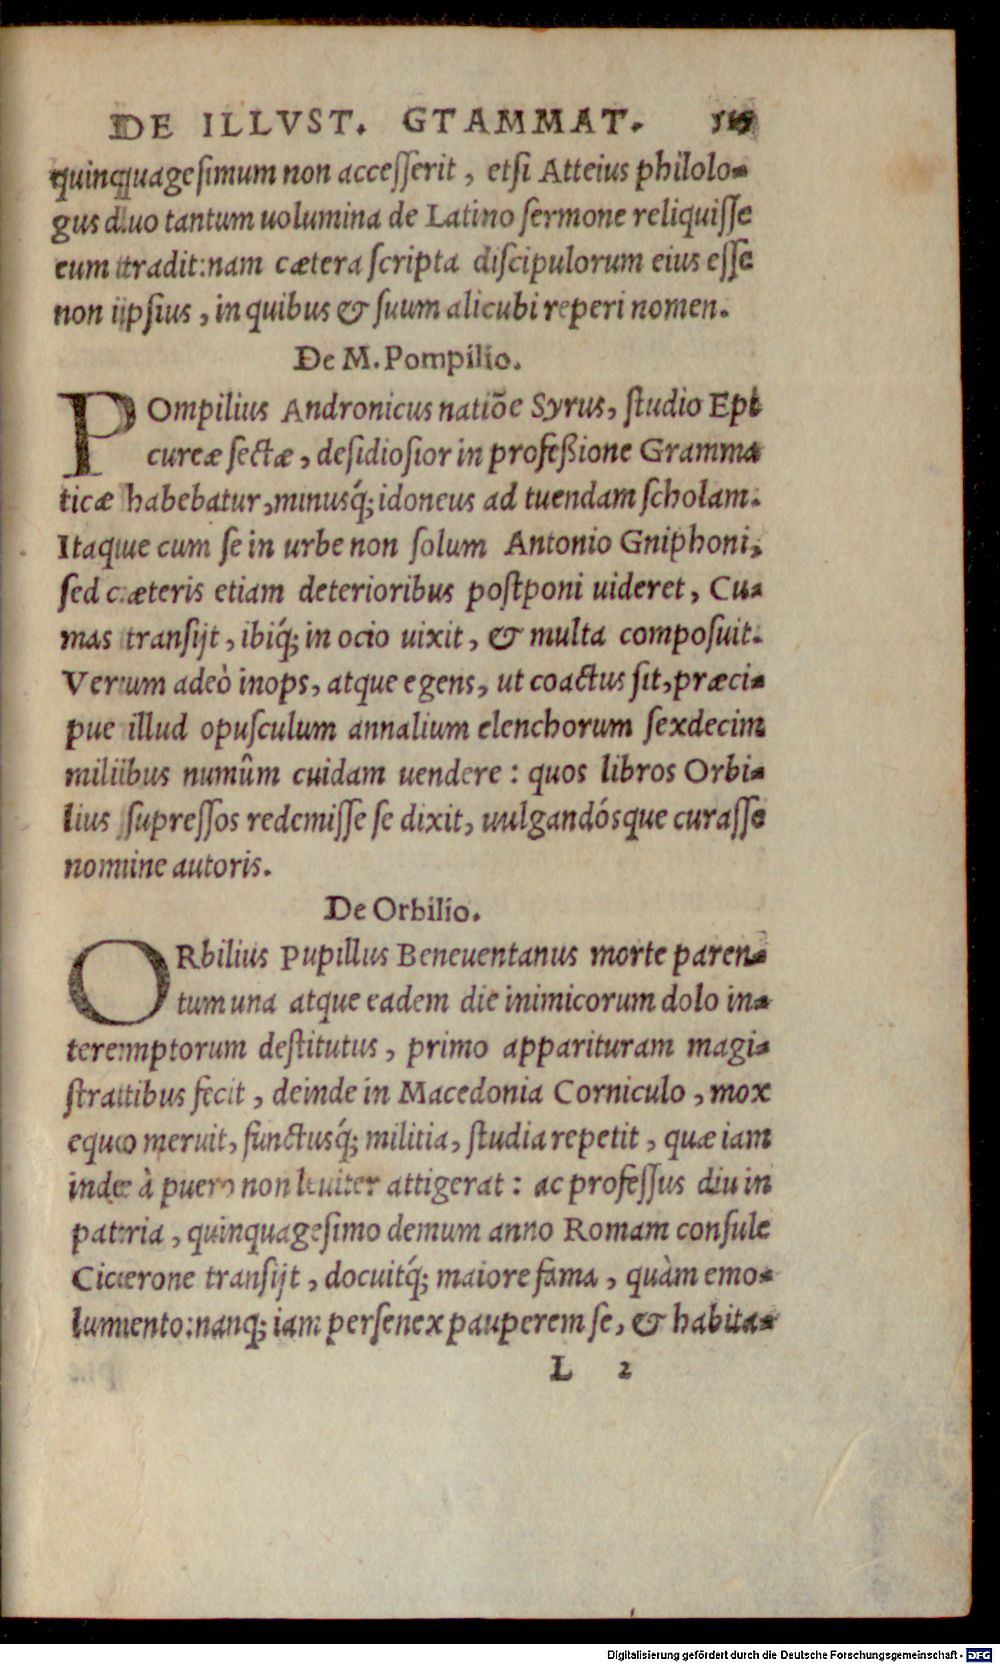 DE ILLVST. GTAMMAT.
quinquagesimum non accesserit, etsi Atteius philolo-
gus duo tantum uolumina de Latino sermone reliquisse
eum tradit: nam cætera scripta discipulorum eius esse
non ipsius, in quibus & suum alicubi reperi nomen.
De M. Pompilio.
POmpilius Andronicus natiõe Syrus, studio Epi
cureæ sectæ, desidiosior in professione Gramma
ticæ habebatur, minusq́; idoneus ad tuendam scholam.
Itaque cum se in urbe non solum Antonio Gniphoni,
sed cæteris etiam deterioribus postponi uideret, Cu-
mas transijt, ibiq́; in ocio uixit, & multa composuit.
Verum adeò inops, atque egens, ut coactus sit, præci-
pue illud opusculum annalium elenchorum sexdecim
milibus numûm cuidam uendere: quos libros Orbi-
lius supressos redemisse se dixit, uulgandósque curasse
nomine autoris.
De Orbilio.
ORbilius Pupillus Beneuentanus morte paren-
tum una atque eadem die inimicorum dolo in-
teremptorum destitutus, primo apparituram magi-
stratibus fecit, deinde in Macedonia Corniculo, mox
equo meruit, functusq́; militia, studia repetit, quæ iam
inde à puero non leuiter attigerat: ac professus diu in
patria, quinquagesimo demum anno Romam consule
Cicerone transijt, docuitq́; maiore fama, quàm emo-
lumento: nanq; iam persenex pauperem se, & habita-
L 2
Digitalisierung gefördert durch die Deutsche Forschungsgemeinschaft - DFG